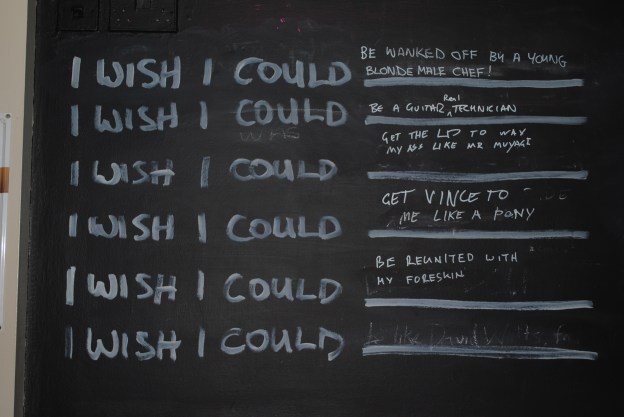 I WISH I COULD BE WANKED OFF BY A YOUNG
BLONDE MALE CHEF!
I WISH I COULD BE A GUITAR Real TECHNICIAN
WAS
GET THE LD TO WAX
MY ASS LIKE MR MUYAGE
I WISH I COULD
GET VINCE TO
I WISH I COULD ME LIKE A PONY
BE REUNITED WITH
I WISH I COULD MY FORESKIN
I WISH I COULD like David